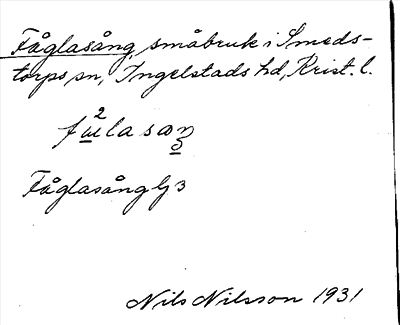 Fåglasång, småbruk i Smeds-
torps sn, Ingelstads hd, Krist. l.
Fåglasång Gj 3
Nils Nilsson 1931